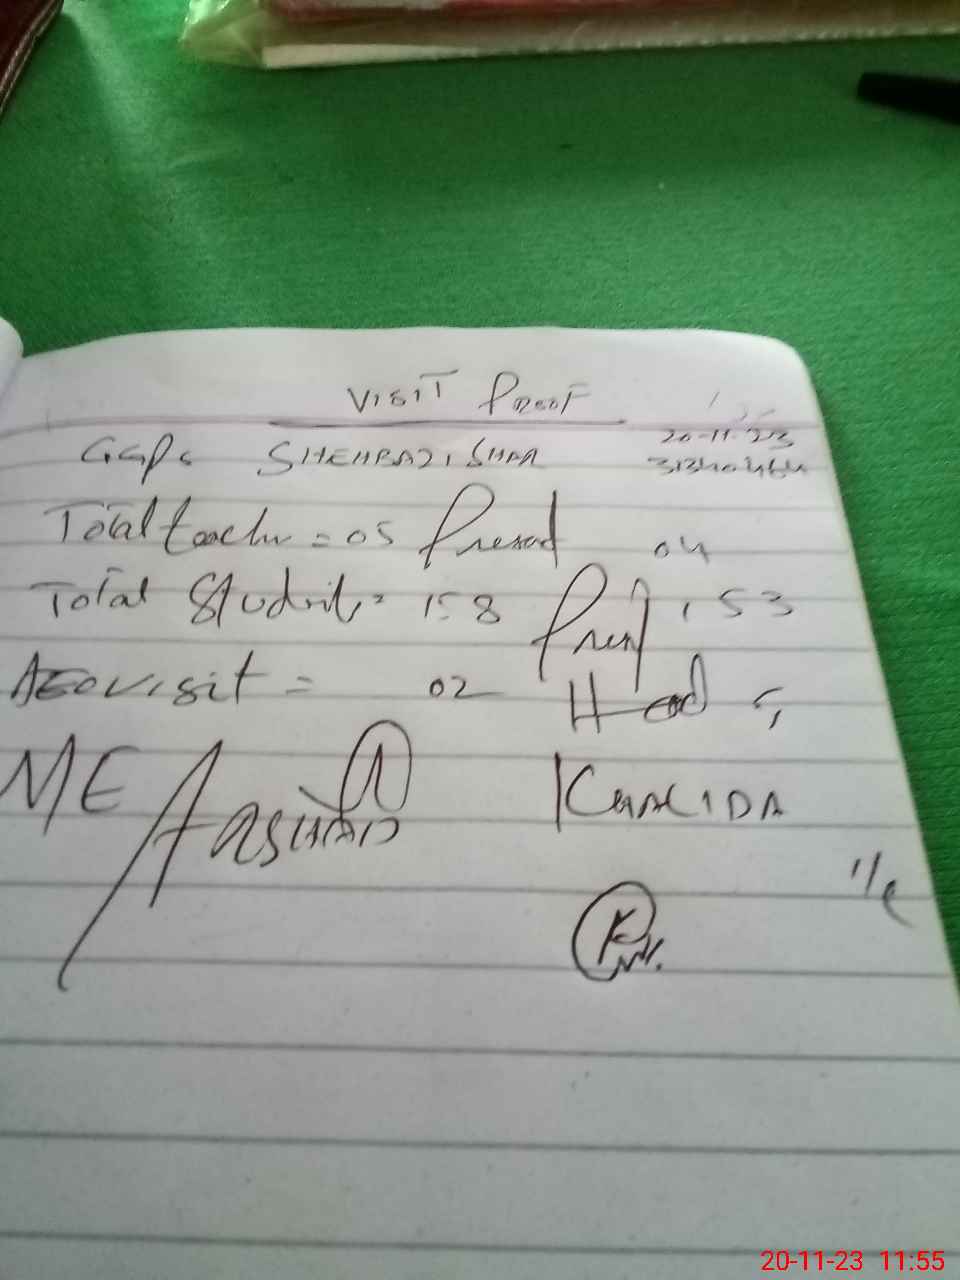 VISIT PROOF
20-11-23
GGPS SHEHBAZI SHAR
31340464
Total teacher = 05 Present 04
Total Student = 158 Present 153
AEO visit = 02 Head
ME ARSHAD KHALIDA
I/C
20-11-23 11:55